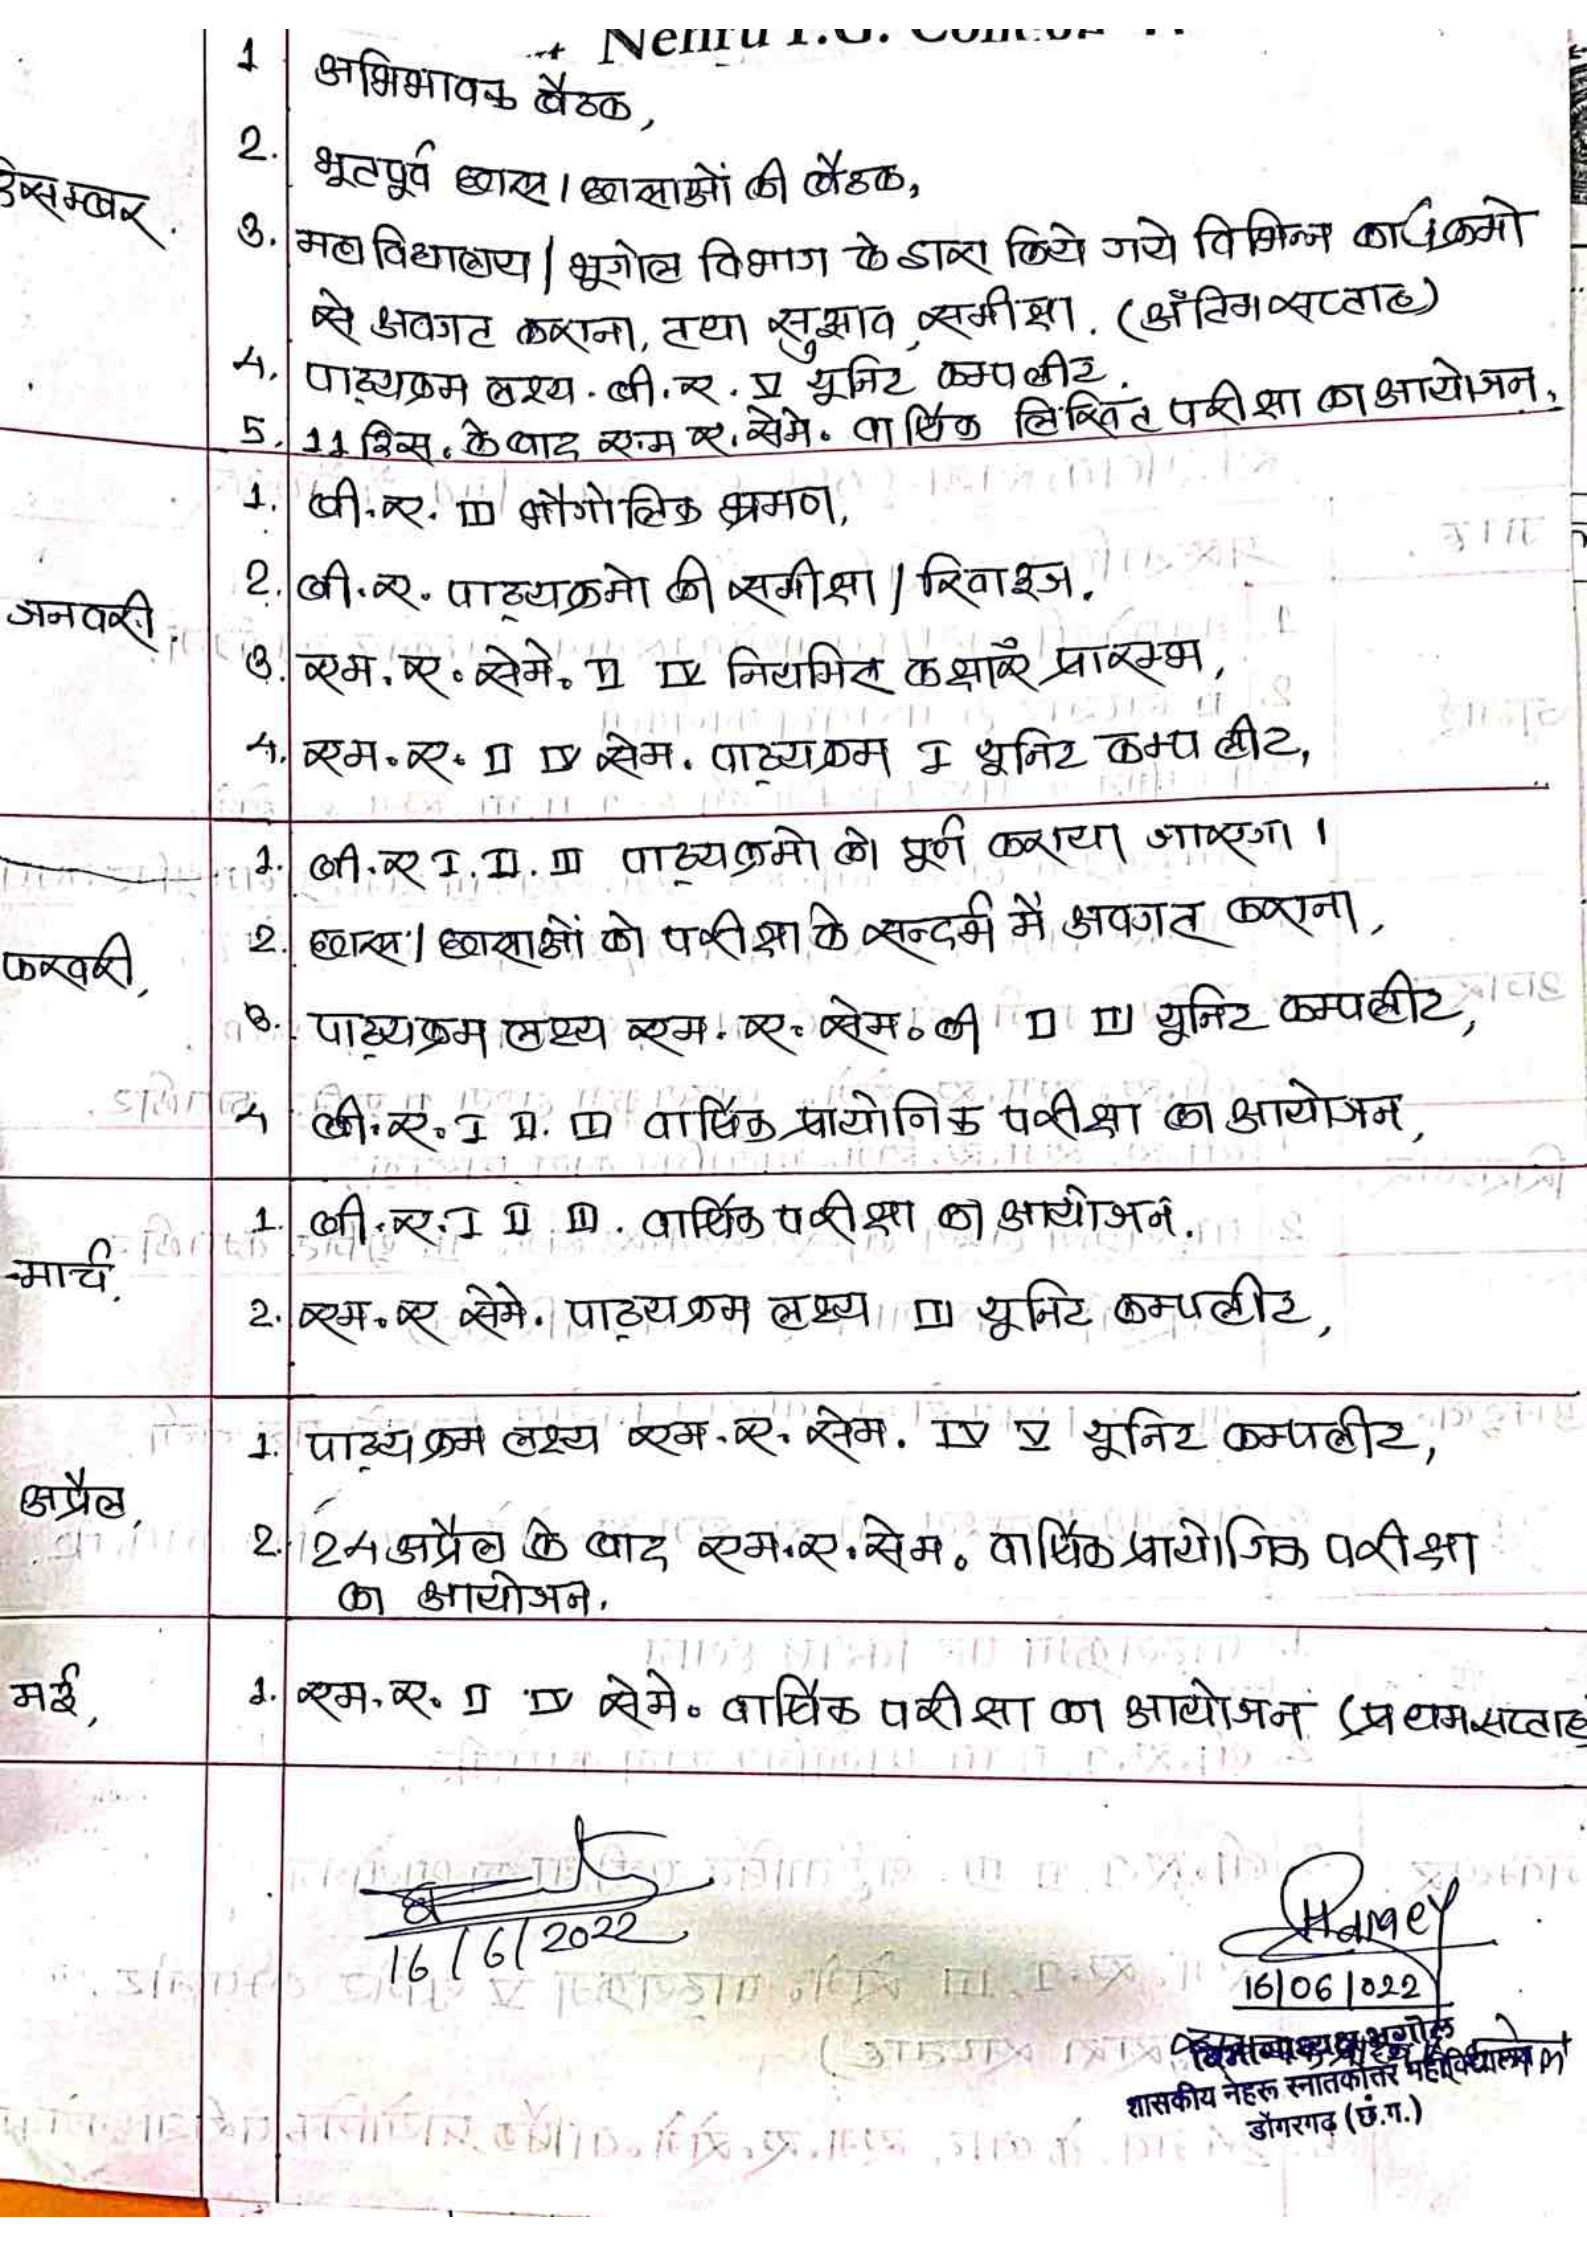 Nehru P.G.
1 अभिभावक बैठक,
2. भूतपूर्व छात्र/छात्राओं की बैठक,
डिसम्बर.
3. महाविद्यालय/भूगोल विभाग के द्वारा किये गये विभिन्न कार्यक्रमो
से अवगत कराना, तथा सुझाव, समीक्षा. (अंतिम सप्ताह)
4. पाठ्यक्रम लक्ष्य. बी.ए. V यूनिट कम्पलीट.
5. 11 दिस. के बाद एम ए. सेमे. वार्षिक लिखित परीक्षा का आयोजन.
1. बी.ए. III भौगोलिक भ्रमण,
2. बी.ए. पाठ्यक्रमो की समीक्षा/रिवाइज.
जनवरी.
3. एम. ए. सेमे. II IV नियमित कक्षाएँ प्रारम्भ,
4. एम.ए. II IV सेम. पाठ्यक्रम I यूनिट कम्पलीट,
1. बी.ए I. II. III पाठ्यक्रमो को पूर्ण कराया जाएगा।
2. छात्र/छात्राओं को परीक्षा के सन्दर्भ में अवगत कराना,
फरवरी,
3. पाठ्यक्रम लक्ष्य एम. ए. सेम. की II III यूनिट कम्पलीट,
4 बी.ए. I II. III वार्षिक प्रायोगिक परीक्षा का आयोजन,
1. बी.ए. I II III. वार्षिक परीक्षा का आयोजन.
मार्च.
2. एम.ए सेमे. पाठ्यक्रम लक्ष्य III यूनिट कम्पलीट,
1. पाठ्यक्रम लक्ष्य एम.ए. सेम. IV V यूनिट कम्पलीट,
अप्रैल,
2. 24 अप्रैल के बाद एम.ए. सेम. वार्षिक प्रायोगिक परीक्षा
का आयोजन.
मई,
1. एम.ए. II IV सेमे. वार्षिक परीक्षा का आयोजन (प्रथम सप्ताह
16/6/2022
16/06/022
शासकीय नेहरू स्नातकोत्तर महाविद्यालय
डोंगरगढ़ (छ.ग.)